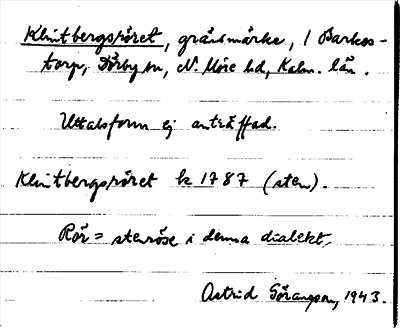 Klintbergsröret, gränsmärke, i Barkes-
torp, Dörby sn, N. Möre hd, Kalm. län.
Uttalsform ej anträffad.
Klintbergsröret k 1787 (sten).
Rör = stenröse i denna dialekt.
Astrid Göransson, 1943.